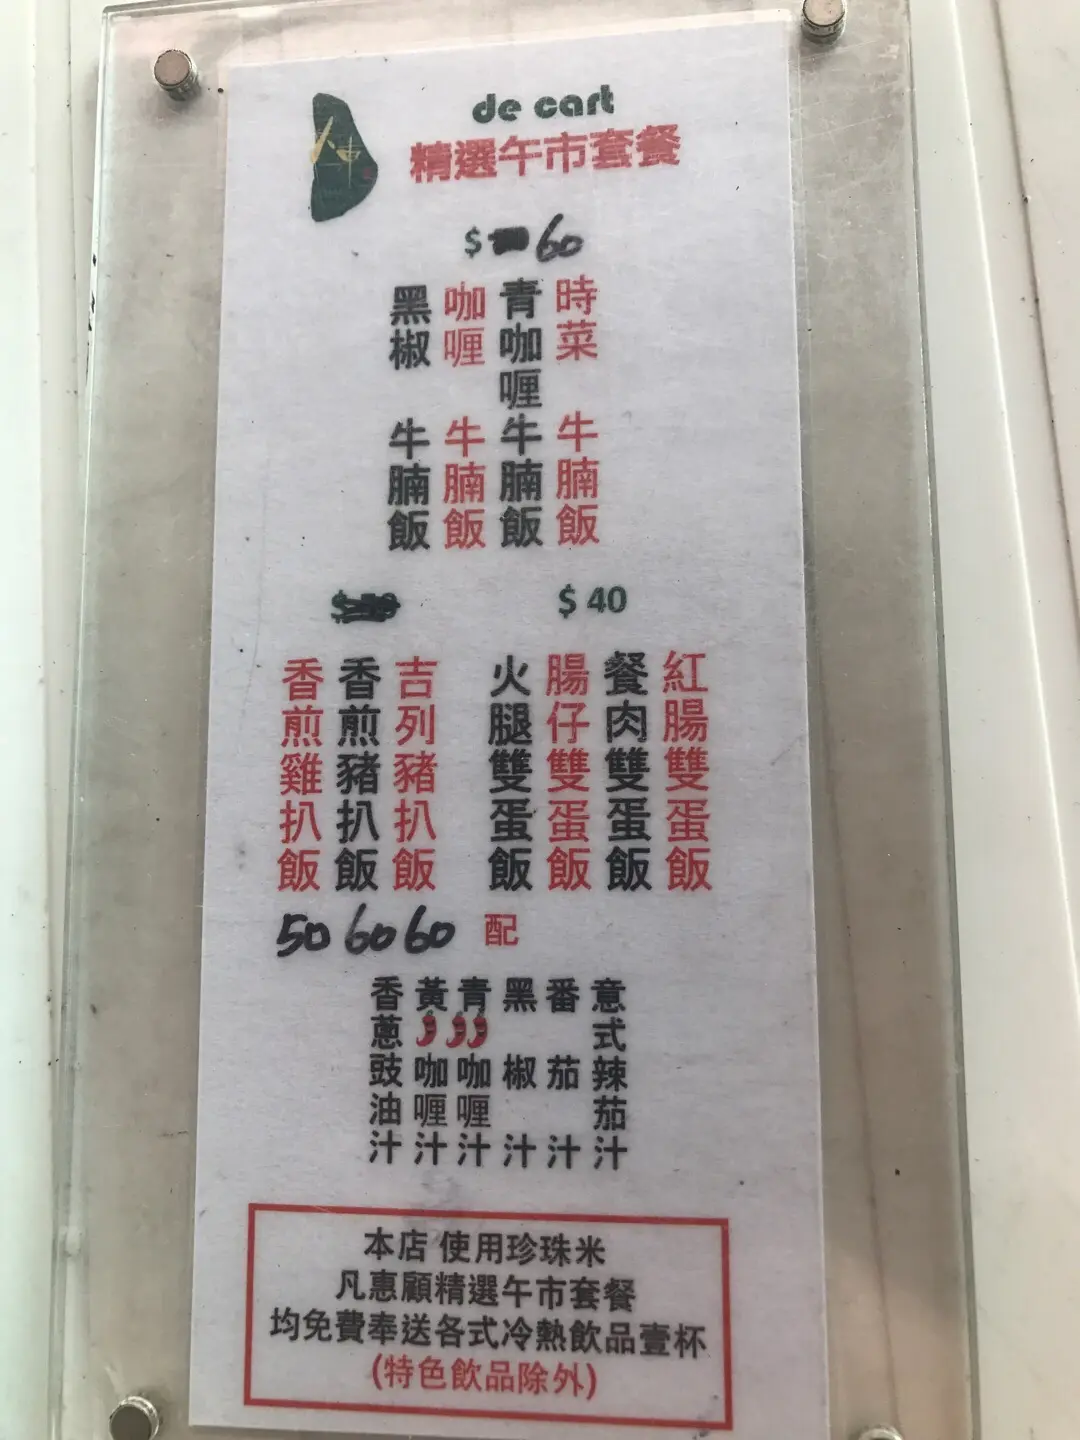 de cart
精選午市套餐
$ 60
黑椒牛腩飯
咖喱牛腩飯
青咖喱牛腩飯
時菜牛腩飯
$
香煎雞扒飯
香煎豬扒飯
吉列豬扒飯
50 60 60
$ 40
火腿雙蛋飯
腸仔雙蛋飯
餐肉雙蛋飯
紅腸雙蛋飯
配
香蔥豉油汁
黃咖喱汁
青咖喱汁
黑椒汁
番茄汁
意式辣茄汁
本店 使用珍珠米
凡惠顧精選午市套餐
均免費奉送各式冷熱飲品壹杯
(特色飲品除外)